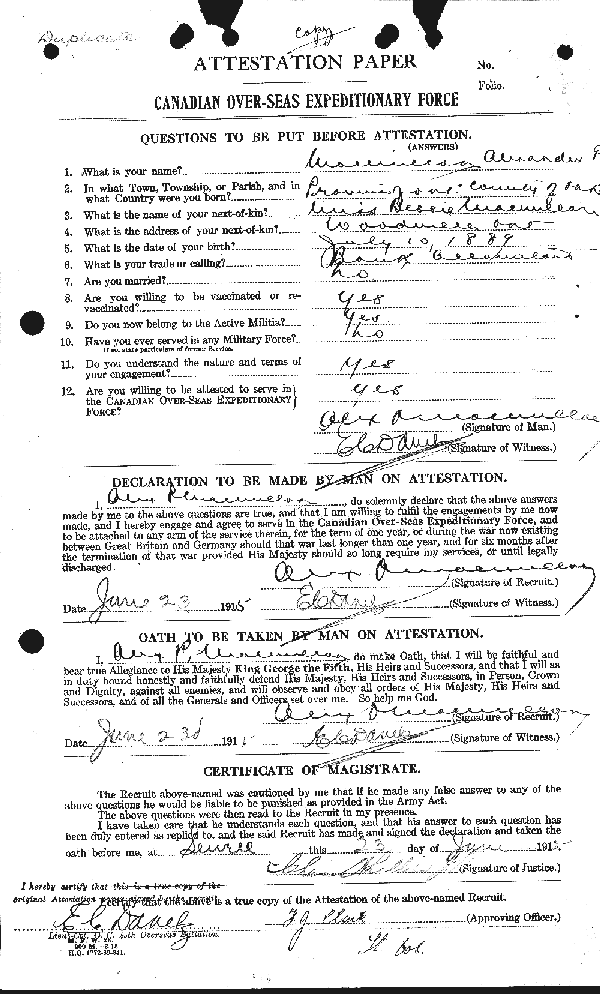 Duplicate
Copy
ATTESTATION PAPER
No.
Folio.
CANADIAN OVER-SEAS EXPEDITIONARY FORCE
QUESTIONS TO BE PUT BEFORE ATTESTATION.
(ANSWERS)
1. What is your name? Alexander
2. In what Town, Township, or Parish, and in
what Country were you born? County
3. What is the name of your next-of-kin? Bessie
4. What is the address of your next-of-kin? Woodville Ont
5. What is the date of your birth? July 10, 1889
6. What is your trade or calling? Bank
7. Are you married? no
8. Are you willing to be vaccinated or re-
vaccinated? Yes
9. Do you now belong to the Active Militia? Yes
10. Have you ever served in any Military Force? no
If so, state particulars of former Service.
11. Do you understand the nature and terms of
your engagement? Yes
12. Are you willing to be attested to serve in
the CANADIAN OVER-SEAS EXPEDITIONARY
FORCE? Yes
Alex
(Signature of Man.)
(Signature of Witness.)
DECLARATION TO BE MADE BY MAN ON ATTESTATION.
I, Alex do solemnly declare that the above answers
made by me to the above questions are true, and that I am willing to fulfil the engagements by me now
made, and I hereby engage and agree to serve in the Canadian Over-Seas Expeditionary Force, and
to be attached to any arm of the service therein, for the term of one year, or during the war now existing
between Great Britain and Germany should that war last longer than one year, and for six months after
the termination of that war provided His Majesty should so long require my services, or until legally
discharged.
Alex
(Signature of Recruit.)
Date June 23 1915 (Signature of Witness.)
OATH TO BE TAKEN BY MAN ON ATTESTATION.
I, Alex P. do make Oath, that I will be faithful and
bear true Allegiance to His Majesty King George the Fifth, His Heirs and Successors, and that I will as
in duty bound honestly and faithfully defend His Majesty, His Heirs and Successors, in Person, Crown
and Dignity, against all enemies, and will observe and obey all orders of His Majesty, His Heirs and
Successors, and of all the Generals and Officers set over me. So help me God.
Alex
(Signature of Recruit.)
Date June 23d 1915 (Signature of Witness.)
CERTIFICATE OF MAGISTRATE.
The Recruit above-named was cautioned by me that if he made any false answer to any of the
above questions he would be liable to be punished as provided in the Army Act.
The above questions were then read to the Recruit in my presence.
I have taken care that he understands each question, and that his answer to each question has
been duly entered as replied to, and the said Recruit has made and signed the declaration and taken the
oath before me, at this 23 day of June 1915
(Signature of Justice.)
I hereby certify that this is a true copy of the
original Attestation
certify that the above is a true copy of the Attestation of the above-named Recruit.
(Approving Officer.)
Overseas Battalion
M. F. W. 23.
H.Q. 1772-39-841.
Lt Col.